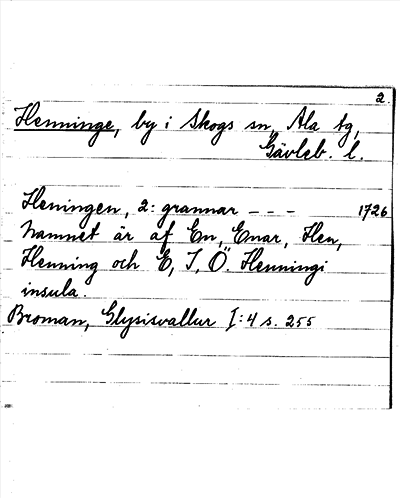 2.
Henninge, by i Skogs sn, Ala tg,
Gävleb. l.
Heningen, 2: grannar - - - 1726
Namnet är af En, Enar, Hen,
Henning och E, I, Ö. Henningi
insula.
Broman, Glysisvallur I:4 s. 255